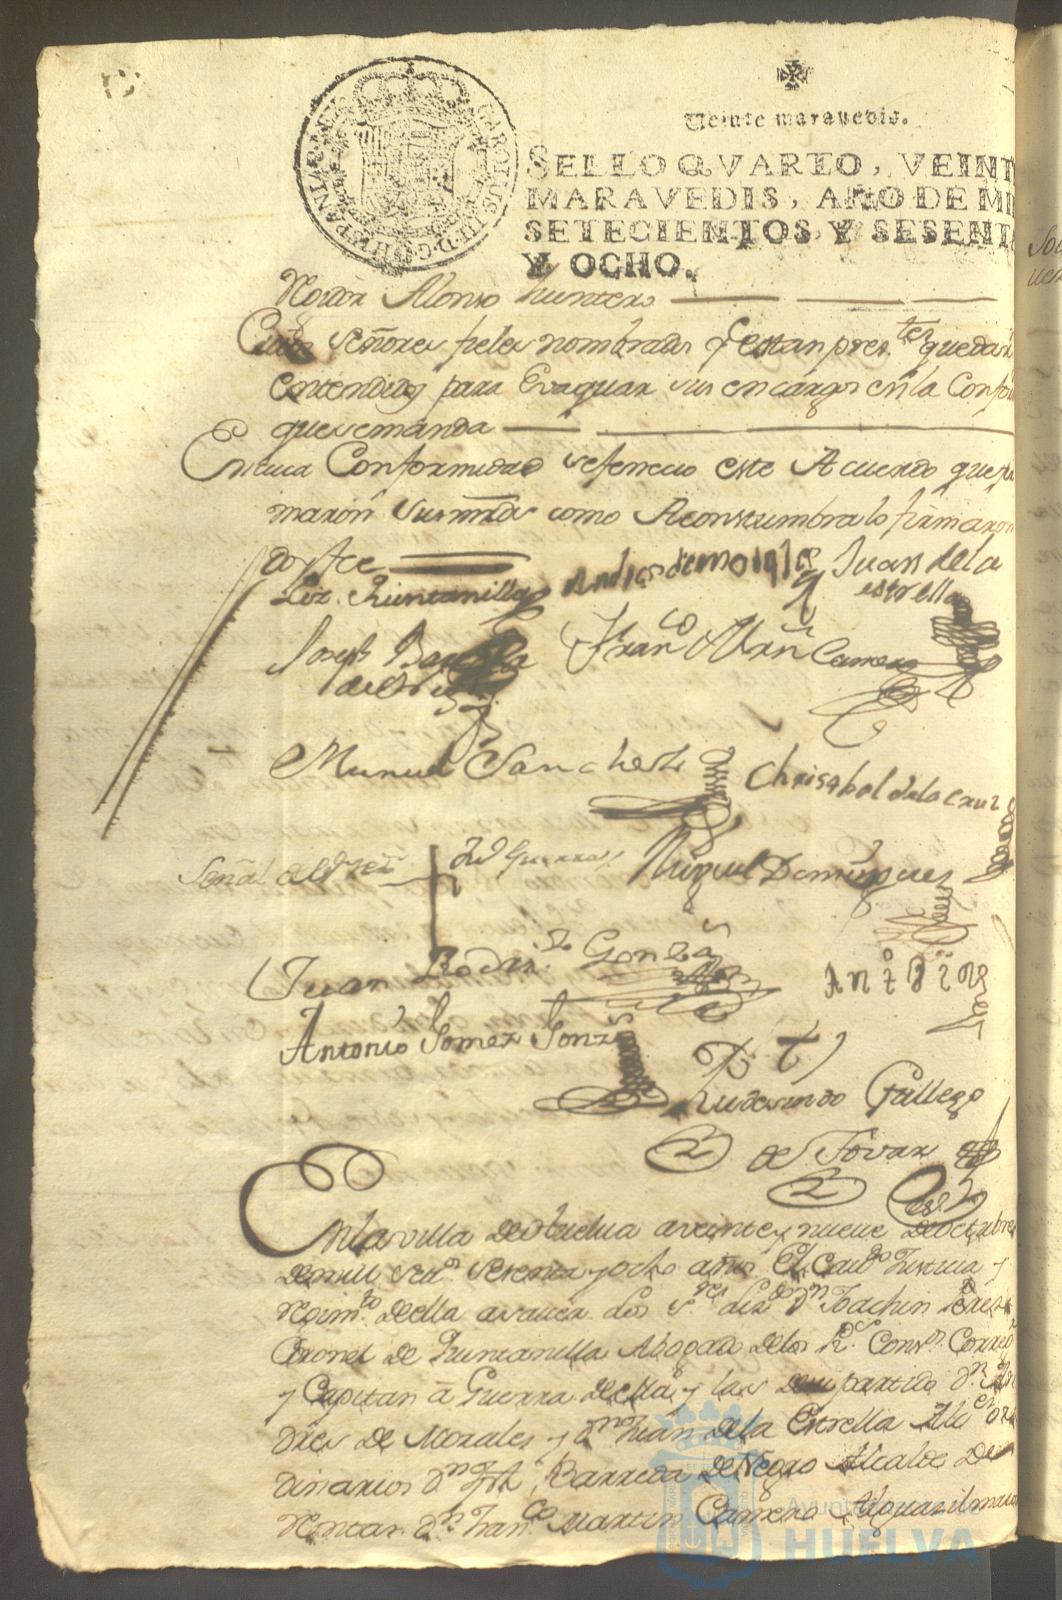 CAROLUS III D G HISPANIAR REX
Veinte maravedis.
SELLO QVARTO, VEINT
MARAVEDIS, AÑO DE MI
SETECIENTOS Y SESENT
Y OCHO.
Alonso
señores fieles nombrados q estan pres.tes quedan
entendidos para Evaquar sus encargos en la Confor
que se manda
En cuia Conformidad se fenecio este Acuerdo que
maron sus mrds como Acostumbra lo firmaron
doy fee
Liz. Quintanilla Andres de morales Juan de la
estrella
Joseph Barreda
de
Fran.co Mrn Camero
Manuel Sanches Christobal de la cruz
Señal del Guerra Miguel Domingues
Juan Rodri.z Gonza
Antonio Gomez Gonz
Rudesindo Gallego
de Tovar
En la villa de Huelva a veinte y nueve de octubre
de mill set.s sesenta y ocho años El cau.do Justicia y
Rejim.to de ella a saver los S.res liz.do D.n Joachin Perez
Coronel de Quintanilla Abogado de los R.s Cons.s Correg
y Capitan a Guerra de ella y las de su partido D.n An
dres de Morales y D.n Juan de la Estrella Alc.es or
dinarios D.n Jph Barreda de Negro Alcalde de
Rentas D.n Fran.co Martin Camero Alguacil maior
Ayuntamiento de
HUELVA